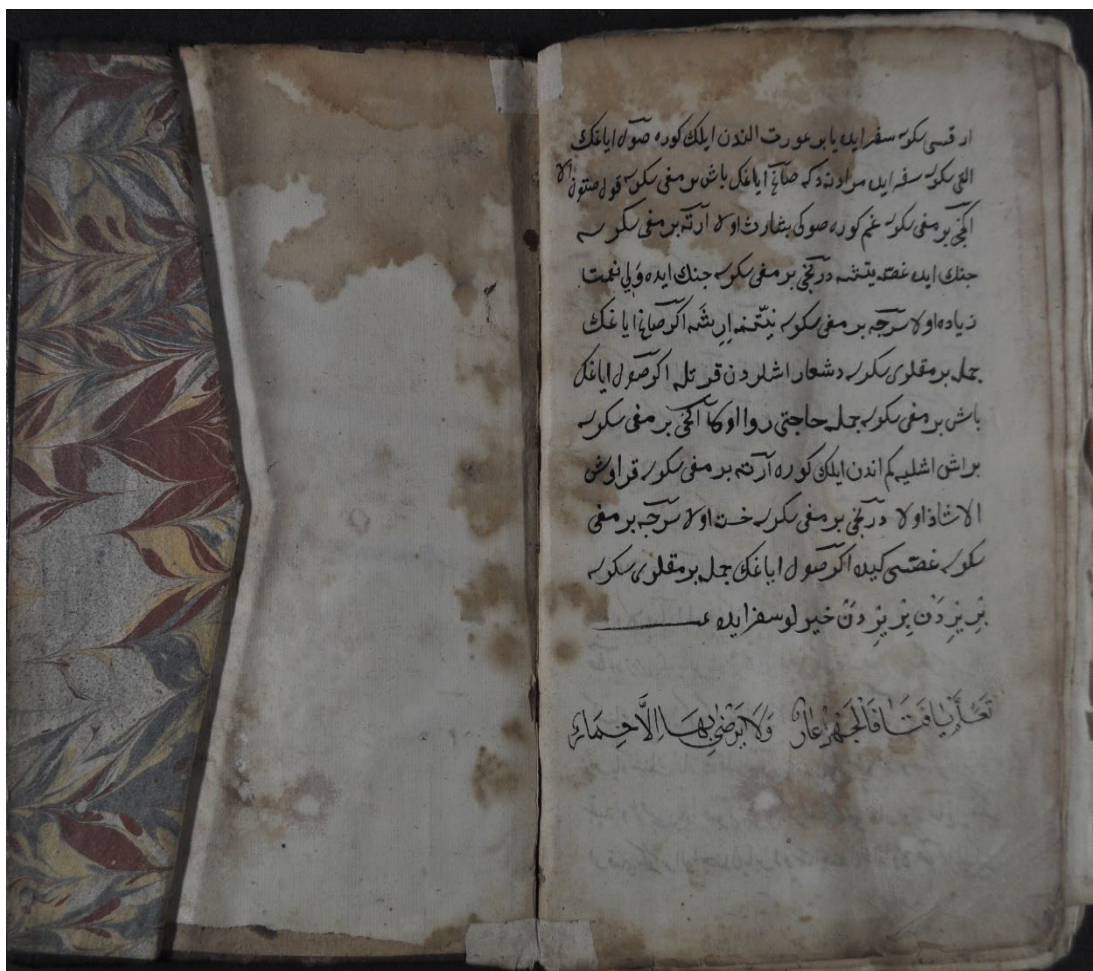 ارقسى سكرسه سفر ايده يا بر عورت الندن ايلك كوره صول اياغك
التى سكرسه سفر ايده مرادنه دكه صاغ اياغك باش برمغى سكرسه قول صتون الا
اكنجى برمغى سكرسه غم كوره صوكى بشارت اولا ارته برمغى سكرسه
جنك ايده غصه يتشه دردنجى برمغى سكرسه جنك ايده ولى نعمت
زياده اولا سرجه برمغى سكرسه نيتنه ايريشه اكر صاغ اياغك
جمله برمقلرى سكرسه دشوار اشلردن قرتله اكر صول اياغك
باش برمغى سكرسه جمله حاجتى روا اولا اكنجى برمغى سكرسه
بر اش اشليه كم اندن ايلك كوره ارته برمغى سكرسه قراوش
الا شاذ اولا دردنجى برمغى سكرسه خسته اولا سرجه برمغى
سكرسه غصه سى كيده اكر صول اياغك جمله برمقلرى سكرسه
بِر يِردَن بِر يِردَن خيرلو سفر ايده
تَعَلَّم يَا فَتَا فَالْجَهْلُ عَارٌ وَلَا يَرْضَى بِهَا اِلَّا حِمَارٌ